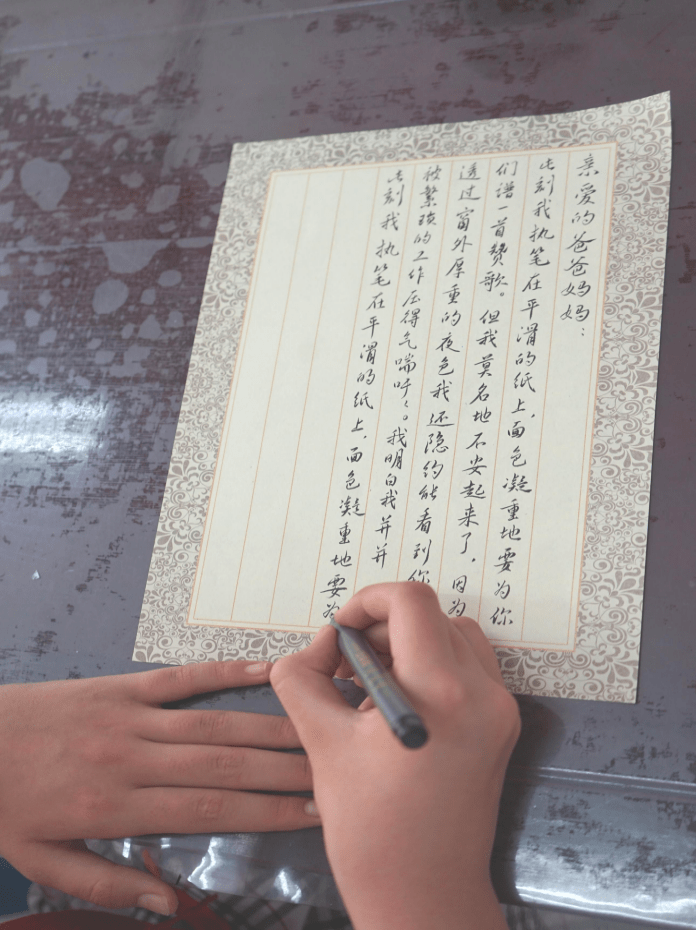 亲爱的爸爸妈妈：
此刻我执笔在平滑的纸上，面色凝重地要为你
们谱一首赞歌。但我莫名地不安起来了，因为
透过窗外厚重的夜色我还隐约能看到你
被繁琐的工作压得气喘吁吁。我明白我并
此刻我执笔在平滑的纸上，面色凝重地要为